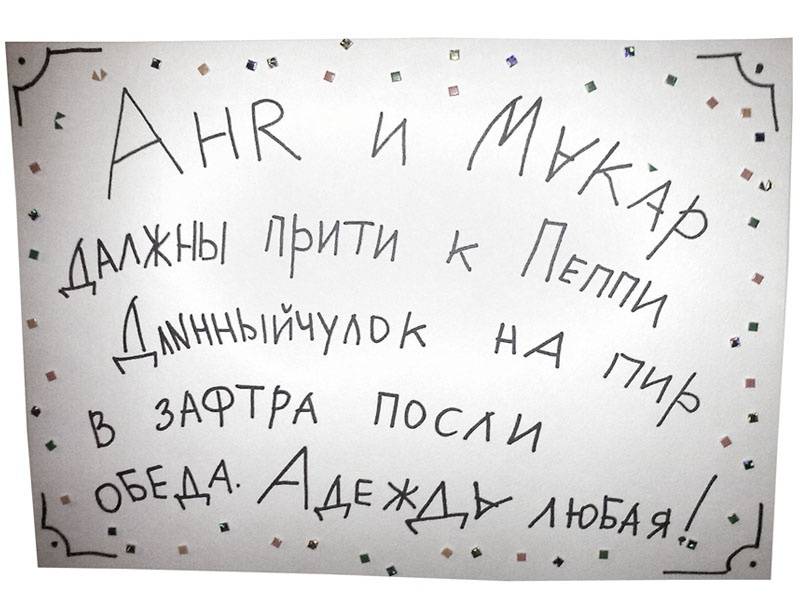 АНR и МАКАР
ДАЛЖНЫ ПРИТИ К ПЕППИ
ДЛИННЫЙЧУЛОК НА ПИР
В ЗАФТРА ПОСЛИ
ОБЕДА. АДЕЖДА ЛЮБАЯ!